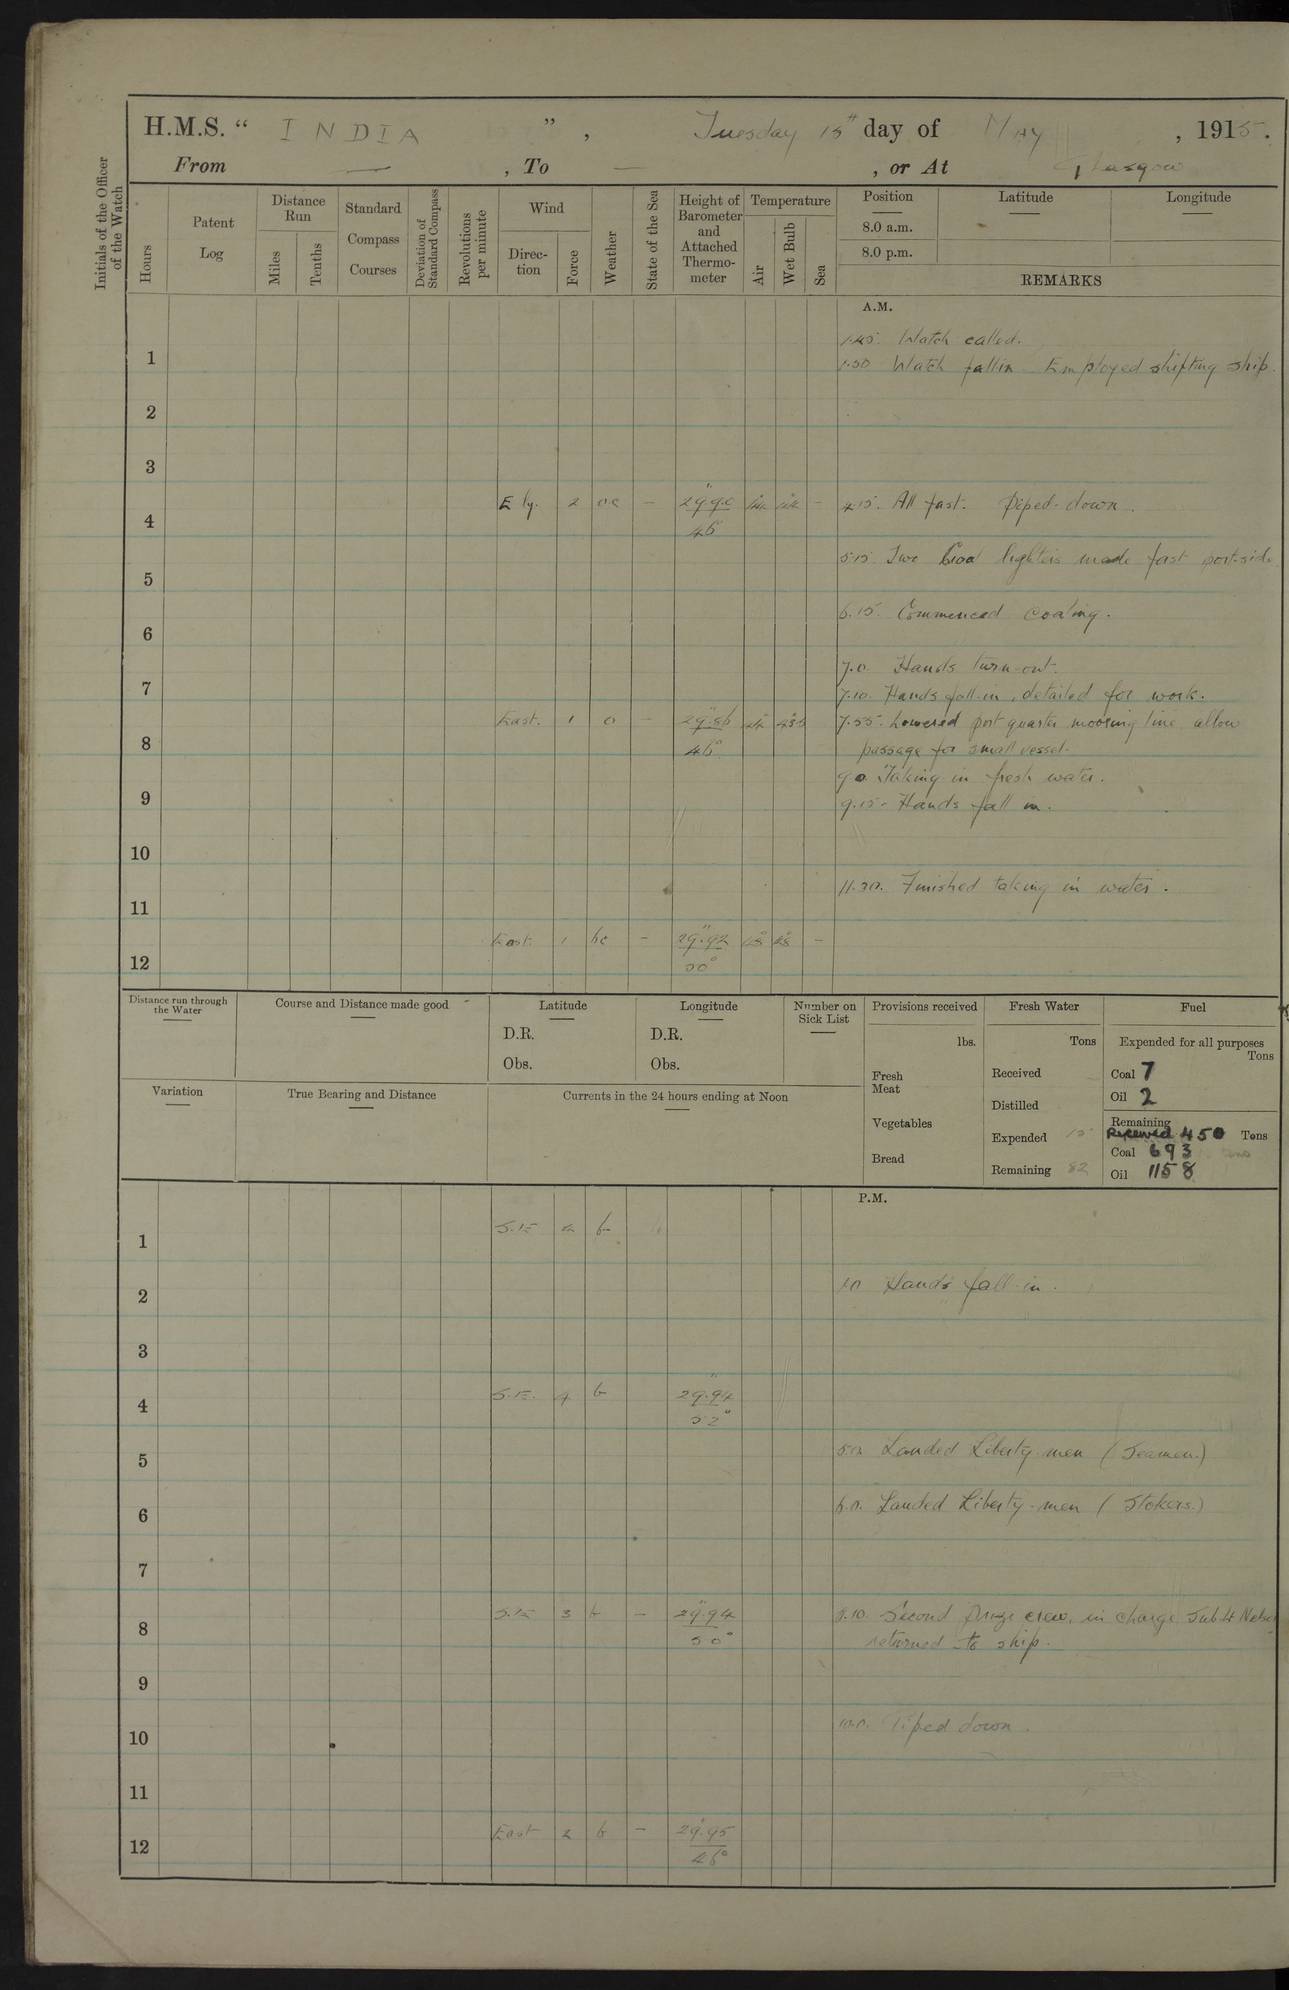 H.M.S. " INDIA ", Tuesday 18th day of May, 1915.
From — , To — , or At Glasgow
Initials of the Officer of the Watch
Hours
Patent Log
Distance Run
Miles
Tenths
Standard Compass Courses
Deviation of Standard Compass
Revolutions per minute
Wind
Direction
Force
Weather
State of the Sea
Height of Barometer and Attached Thermometer
Temperature
Air
Wet Bulb
Sea
Position
8.0 a.m.
8.0 p.m.
Latitude
Longitude
REMARKS
A.M.
1.45. Watch called.
1 1.50 Watch fall in Employed shifting ship.
2
3
4 Ely. 2 oc — 29.90 46 — 4.15. All fast. Piped-down.
5.15. Two Coal lighters made fast port-side
5
6.15. Commenced coaling.
6
7.0 Hands turn-out.
7 7.10. Hands fall-in, detailed for work.
East. 1 o — 46° 7.55. Lowered port quarter mooring line allow
8 passage for small vessel.
9.0 Taking in fresh water.
9 9.15- Hands fall in.
10
11.30. Finished taking in water.
11
12 East. 1 bc — 29.92 50° 48 48 —
Distance run through the Water
Course and Distance made good
Latitude
D.R.
Obs.
Longitude
D.R.
Obs.
Number on Sick List
Provisions received
lbs.
Fresh Meat
Vegetables
Bread
Fresh Water
Tons
Received
Distilled
Expended 15
Remaining 82
Fuel
Expended for all purposes
Tons
Coal 7
Oil 2
Remaining
Received 450 Tons
Coal 693
Oil 1158
Variation
True Bearing and Distance
Currents in the 24 hours ending at Noon
P.M.
1 S.E. 4 b
2 1.0 Hands fall-in.
3
4 S.E. 4 b 29.94 52°
5 5.0 Landed Liberty-men (Seamen.)
6 6.0. Landed Liberty-men (Stokers.)
7
S.E. 3 b — 29.94 50° 8.10. Second prize crew, in charge Sub Lt Nelson
8 returned to ship.
9
10 10.0. Piped down.
11
12 East 2 b — 29.95 46°